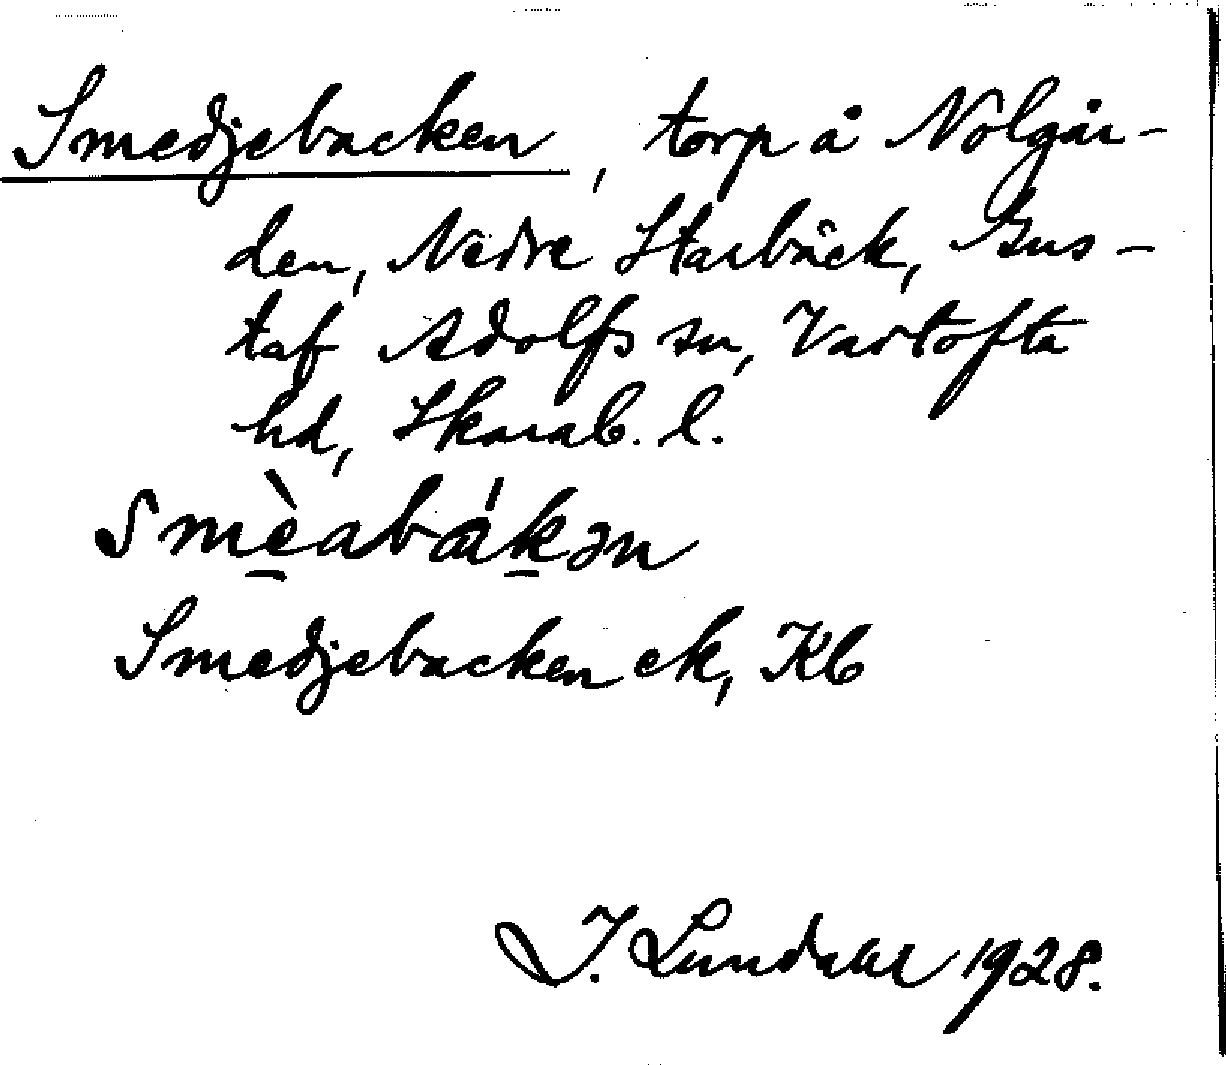 Smedjebacken, torp å Nolgår-
den, Nedre Starbäck, Gus-
taf Adolfs sn, Vartofta
hd, Skarab. l.
Smèabákən
Smedjebacken ek, Kb
I. Lundahl 1928.